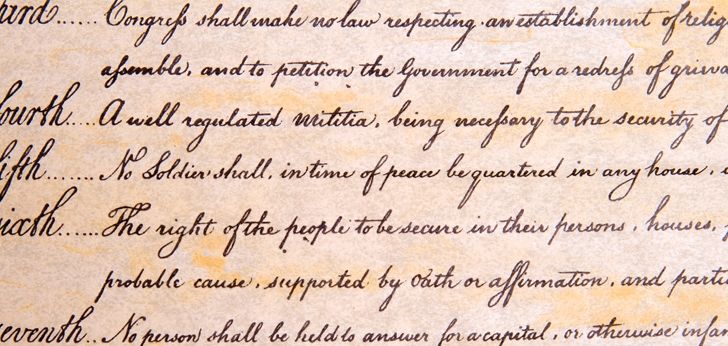 hird...... Congreſs shall make no law respecting an establishment of relig
aſsemble, and to petition the Government for a redreſs of grieva
ourth.... A well regulated militia, being neceſsary to the security of
ifth....... No Soldier shall, in time of peace be quartered in any house,
ixth...... The right of the people to be secure in their persons, houses,
probable cause, supported by Oath or affirmation, and parti
eventh.. No person shall be held to answer for a capital, or otherwise infam